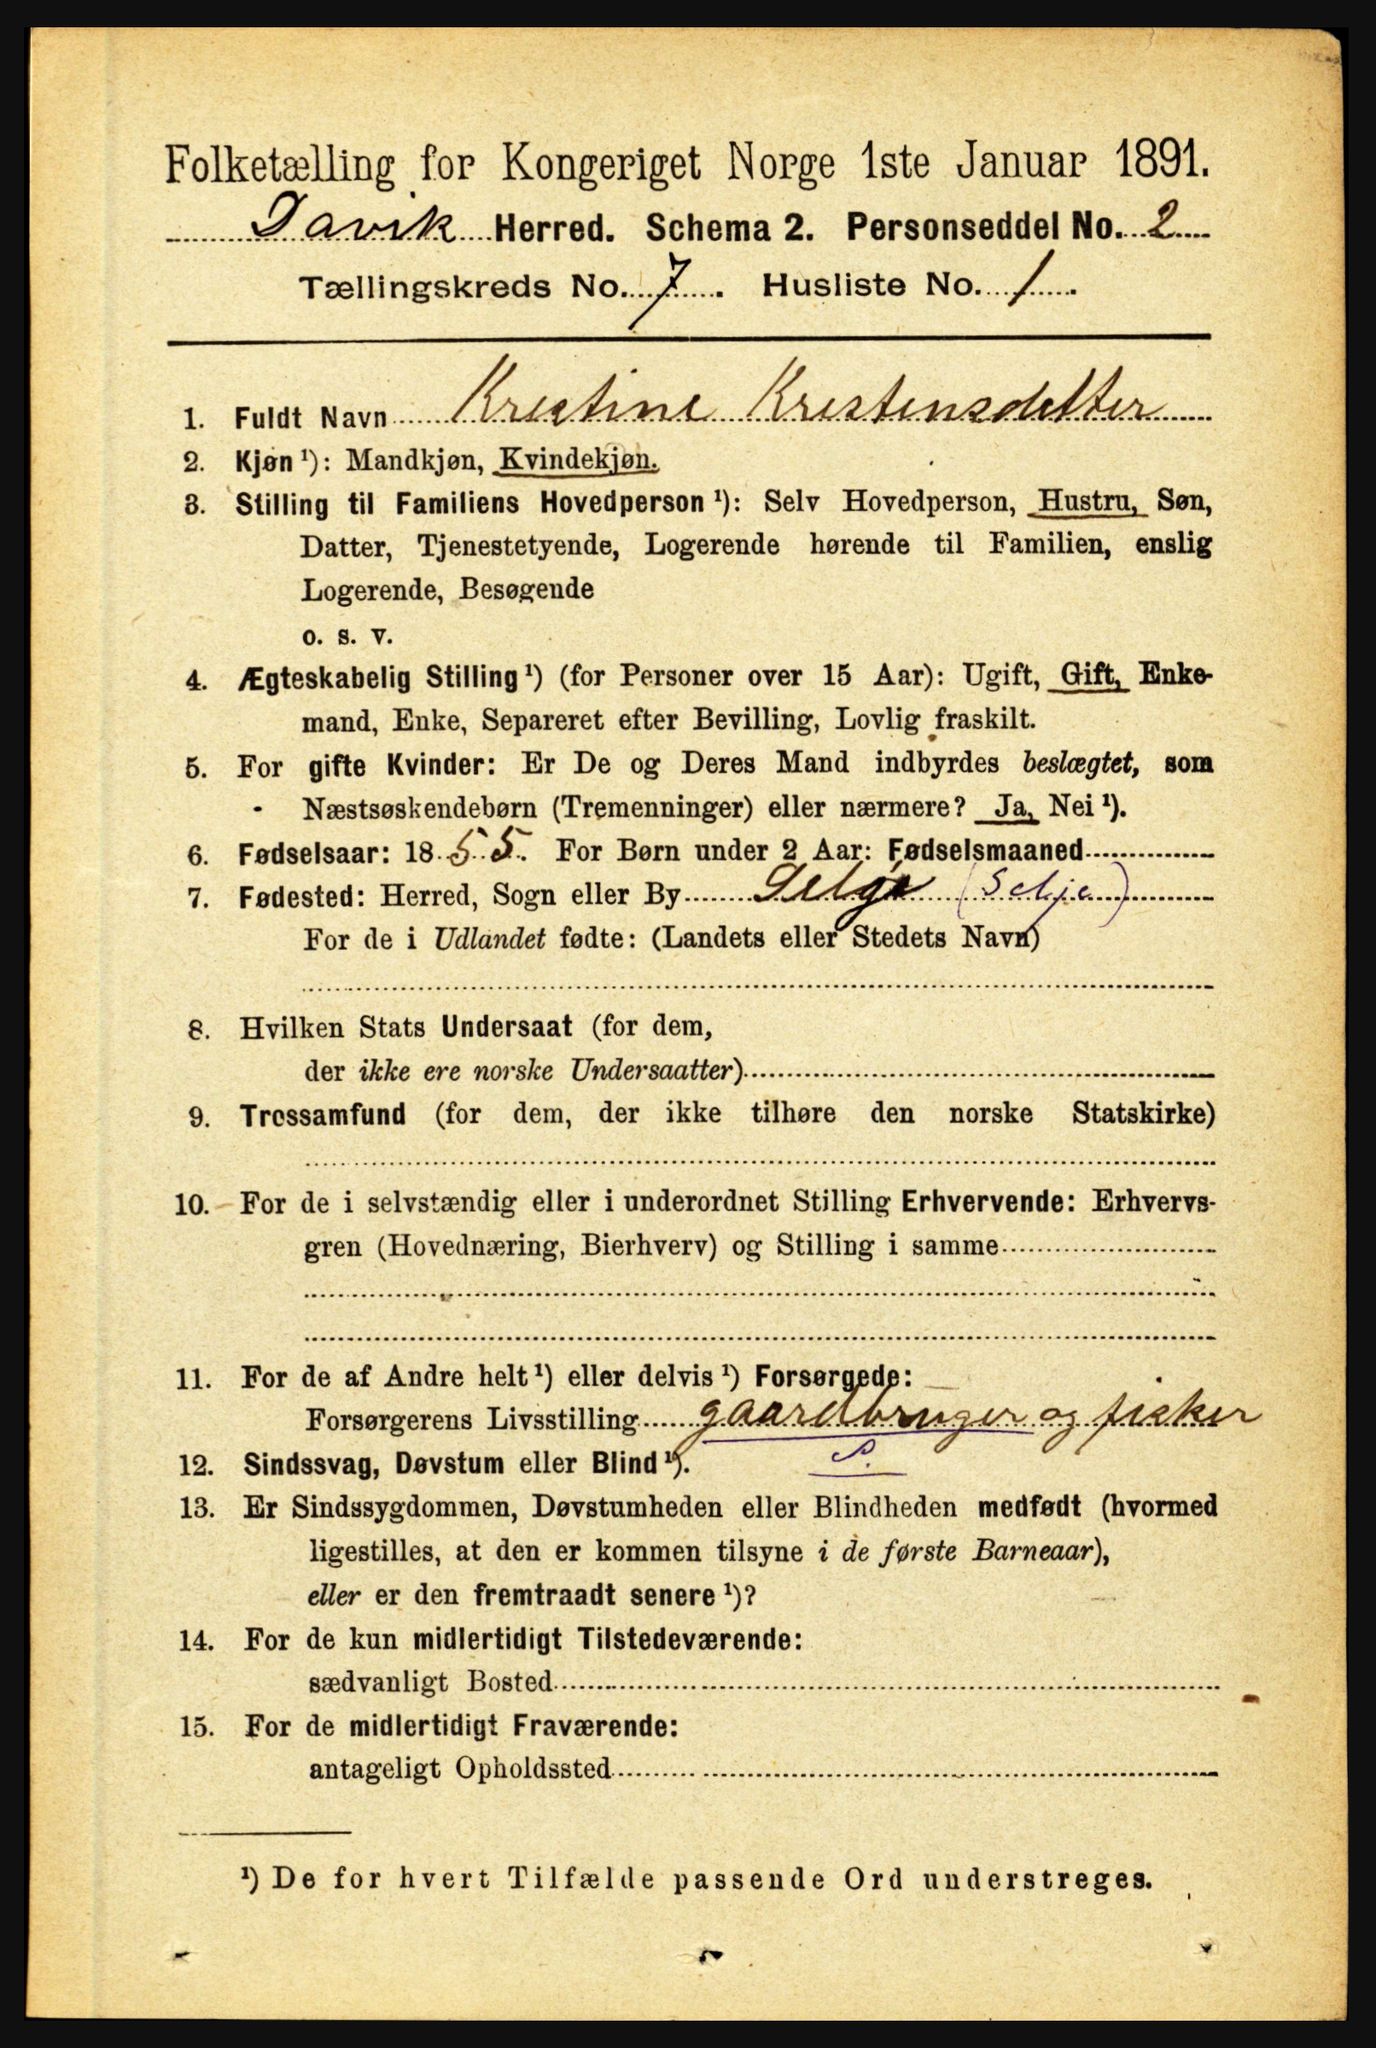 Folketælling for Kongeriget Norge 1ste Januar 1891.
Davik Herred. Schema 2. Personseddel No. 2
Tællingskreds No. 7. Husliste No. 1.
1. Fuldt Navn Krestine Krestensdatter
2. Kjøn ¹): Mandkjøn, Kvindekjøn.
3. Stilling til Familiens Hovedperson ¹): Selv Hovedperson, Hustru, Søn,
Datter, Tjenestetyende, Logerende hørende til Familien, enslig
Logerende, Besøgende
o. s. v.
4. Ægteskabelig Stilling ¹) (for Personer over 15 Aar): Ugift, Gift, Enke-
mand, Enke, Separeret efter Bevilling, Lovlig fraskilt.
5. For gifte Kvinder: Er De og Deres Mand indbyrdes beslægtet, som
Næstsøskendebørn (Tremenninger) eller nærmere? Ja, Nei ¹).
6. Fødselsaar: 1855. For Børn under 2 Aar: Fødselsmaaned
7. Fødested: Herred, Sogn eller By Selge (Selje)
For de i Udlandet fødte: (Landets eller Stedets Navn)
8. Hvilken Stats Undersaat (for dem,
der ikke ere norske Undersaatter)
9. Trossamfund (for dem, der ikke tilhøre den norske Statskirke)
10. For de i selvstændig eller i underordnet Stilling Erhvervende: Erhvervs-
gren (Hovednæring, Bierhverv) og Stilling i samme
11. For de af Andre helt ¹) eller delvis ¹) Forsørgede:
Forsørgerens Livsstilling gaardbruger og fisker
S.
12. Sindssvag, Døvstum eller Blind ¹).
13. Er Sindssygdommen, Døvstumheden eller Blindheden medfødt (hvormed
ligestilles, at den er kommen tilsyne i de første Barneaar),
eller er den fremtraadt senere ¹)?
14. For de kun midlertidigt Tilstedeværende:
sædvanligt Bosted
15. For de midlertidigt Fraværende:
antageligt Opholdssted
¹) De for hvert Tilfælde passende Ord understreges.